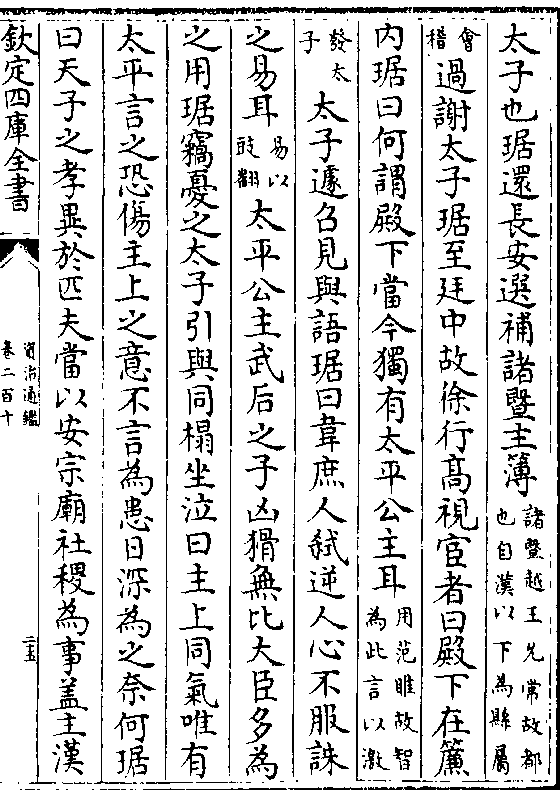 太子也琚還長安選補諸暨主簿諸暨越王允常故都
也自漢以下為縣屬
會
稽過謝太子琚至廷中故徐行髙視宦者曰殿下在簾
内琚曰何謂殿下當今獨有太平公主耳用范睢故智
為此言以激
發太
子太子遽召見與語琚曰韋庶人弑逆人心不服誅
之易耳易以
豉翻太平公主武后之子凶猾無比大臣多為
之用琚竊憂之太子引與同榻坐泣曰主上同氣唯有
太平言之恐傷主上之意不言為患日深為之奈何琚
曰天子之孝異於匹夫當以安宗廟社稷為事盖主漢
欽定四庫全書
資治通鑑
卷二百十